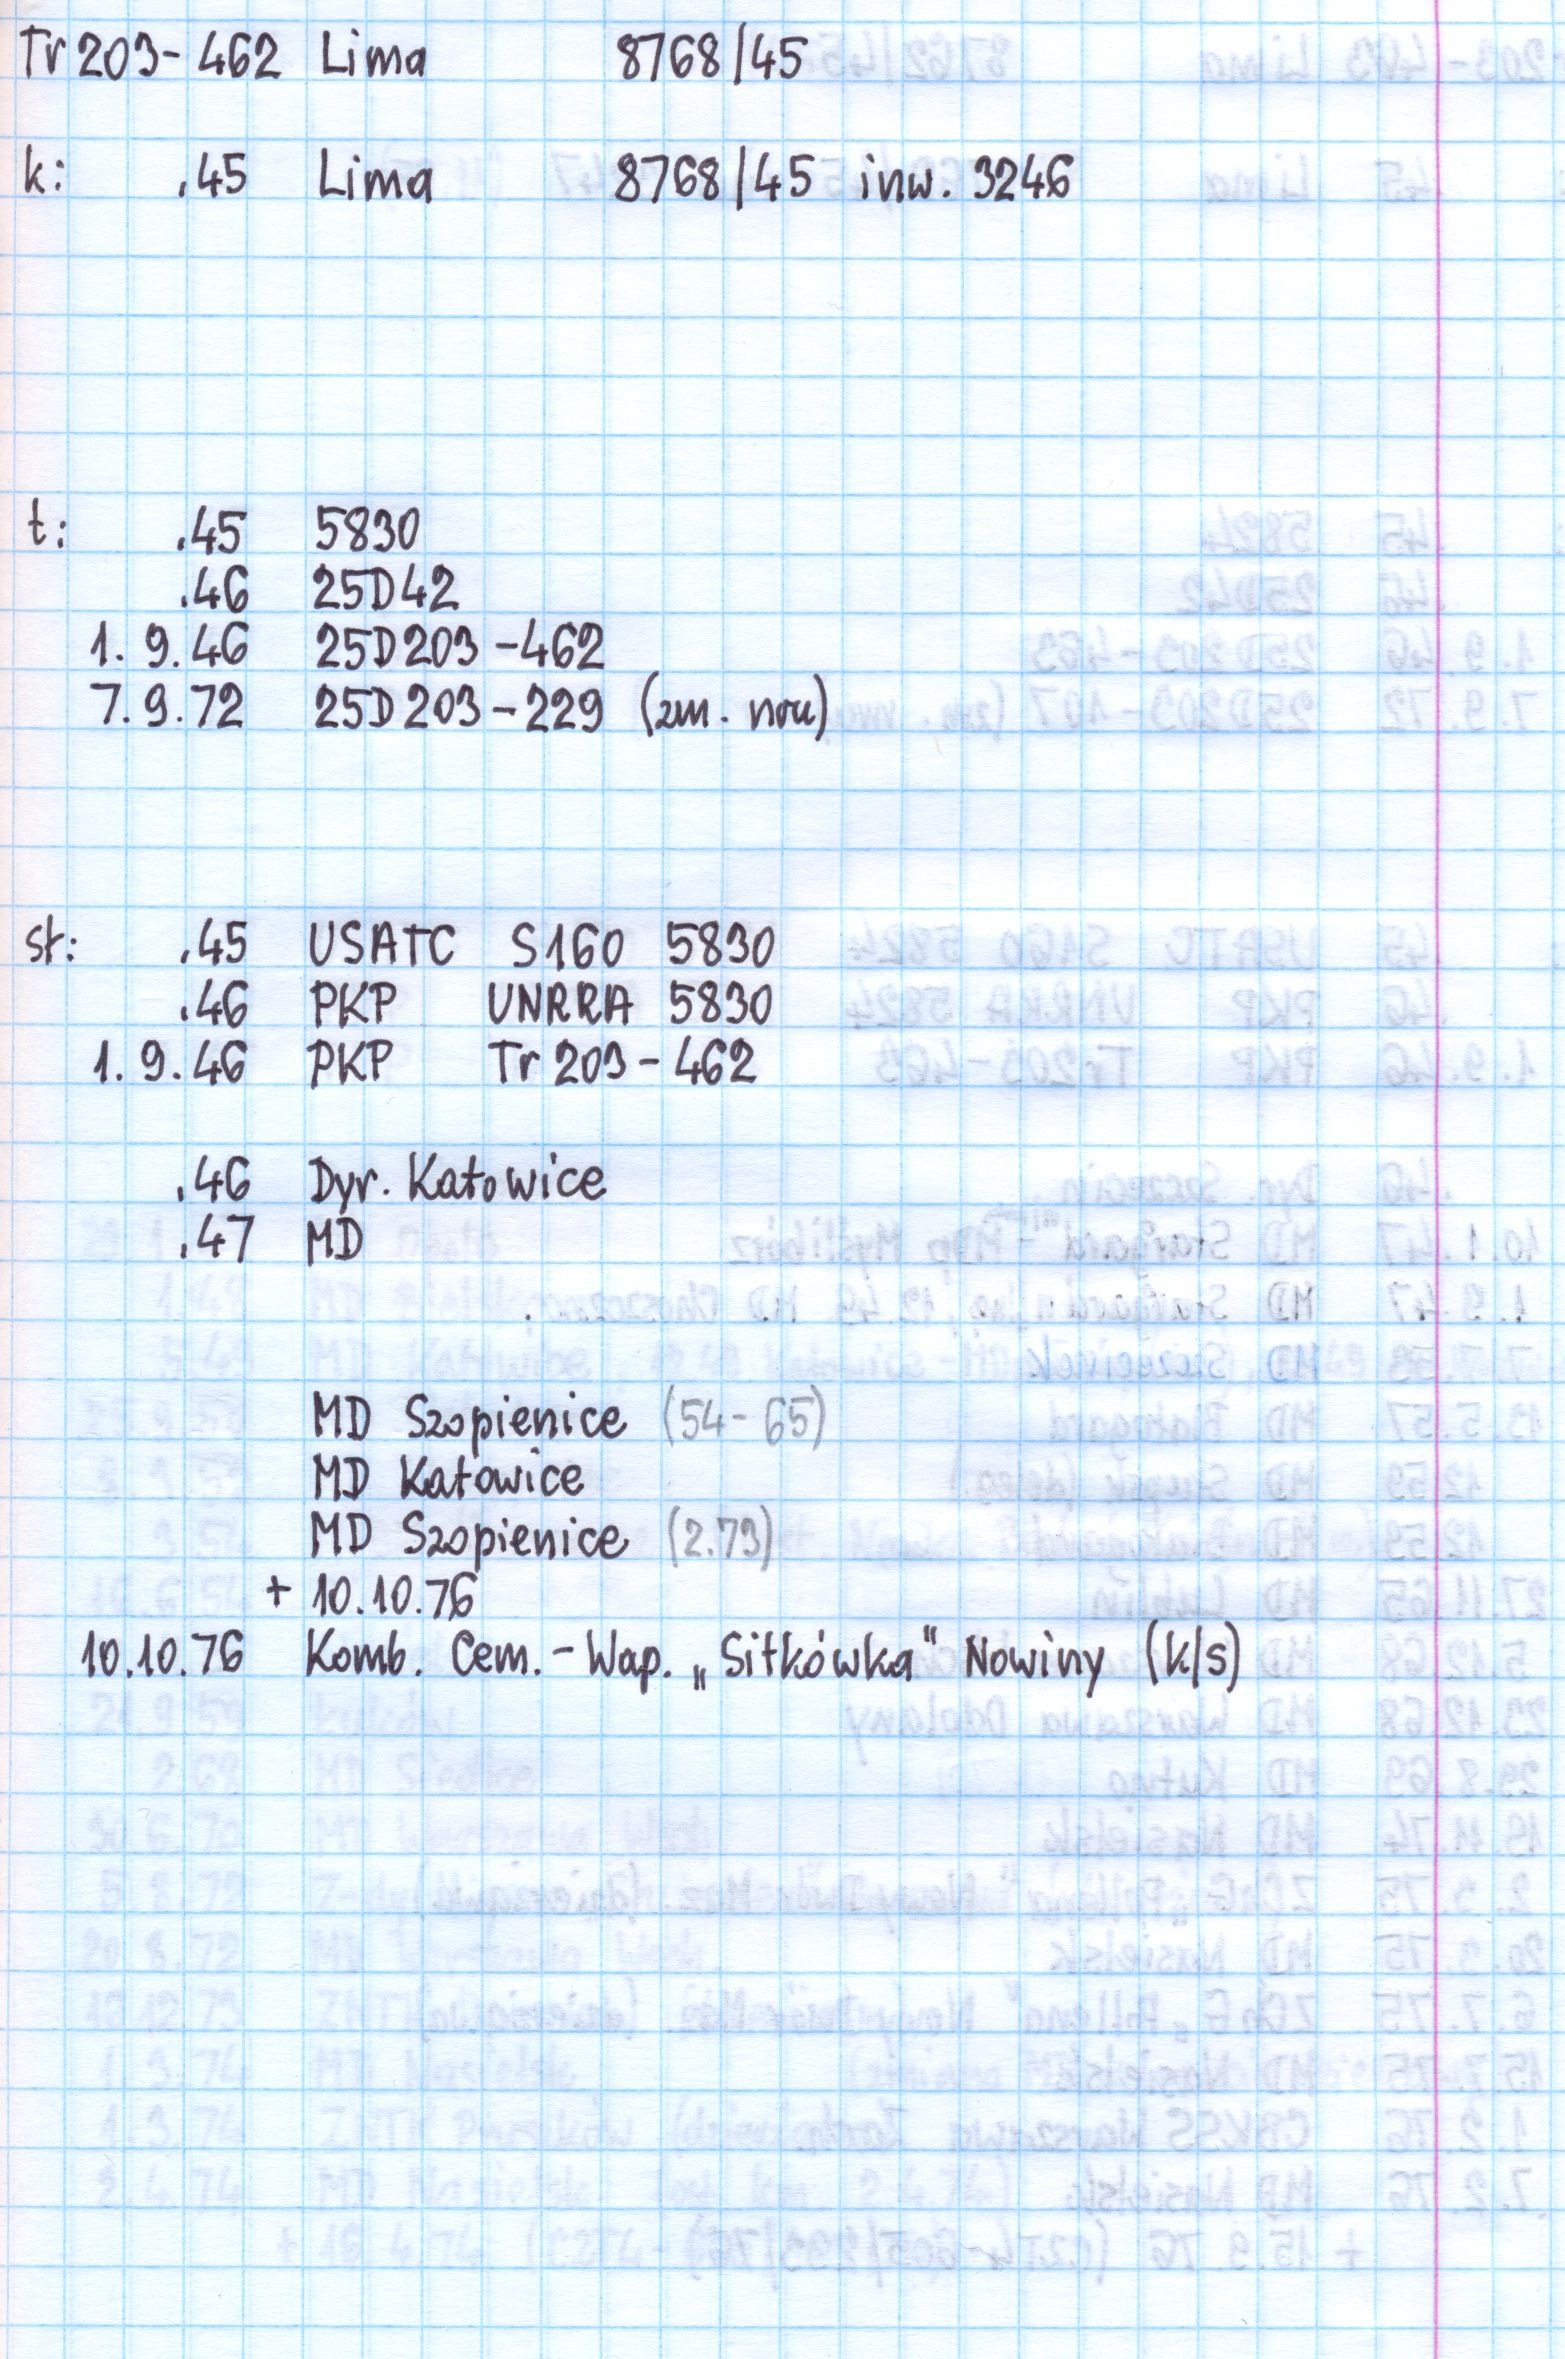 Tr 203-462 Lima 8768/45
k: .45 Lima 8768/45 inw. 3246
t: .45 5830
.46 25D42
1.9.46 25D203-462
7.9.72 25D203-229 (zm. nru)
st: .45 USATC S160 5830
.46 PKP UNRRA 5830
1.9.46 PKP Tr 203-462
.46 Dyr. Katowice
.47 MD
MD Szopienice (54-65)
MD Katowice
MD Szopienice (2.73)
+ 10.10.76
10.10.76 Komb. Cem.-Wap. „Sitkówka" Nowiny (k/s)